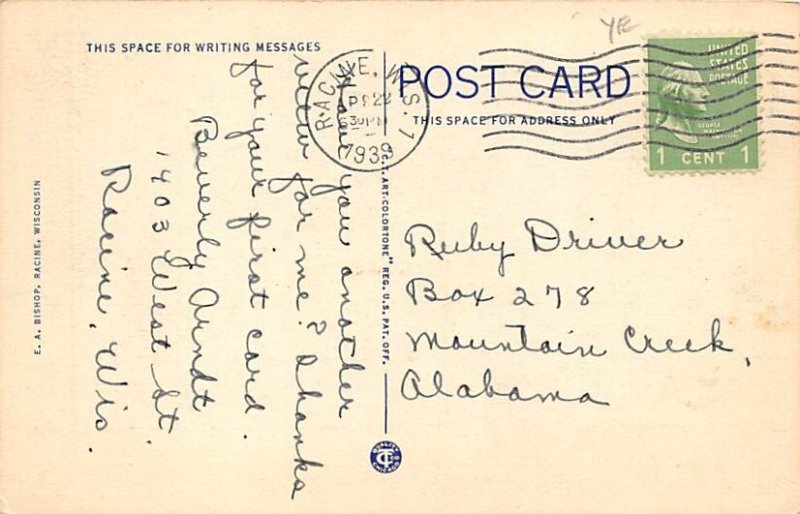 YE
THIS SPACE FOR WRITING MESSAGES
POST CARD
THIS SPACE FOR ADDRESS ONLY
RACINE, WIS. 1
APR 22
630 PM
1939
UNITED
STATES
POSTAGE
GEORGE
WASHINGTON
1 CENT 1
Have you another
view for me? Thanks
for your first card.
Beverly Arndt
1403 West St.
Racine, Wis.
Ruby Driver
Box 278
Mountain Creek,
Alabama
E. A. BISHOP, RACINE, WISCONSIN
C.T. ART-COLORTONE" REG. U.S. PAT. OFF.
CT